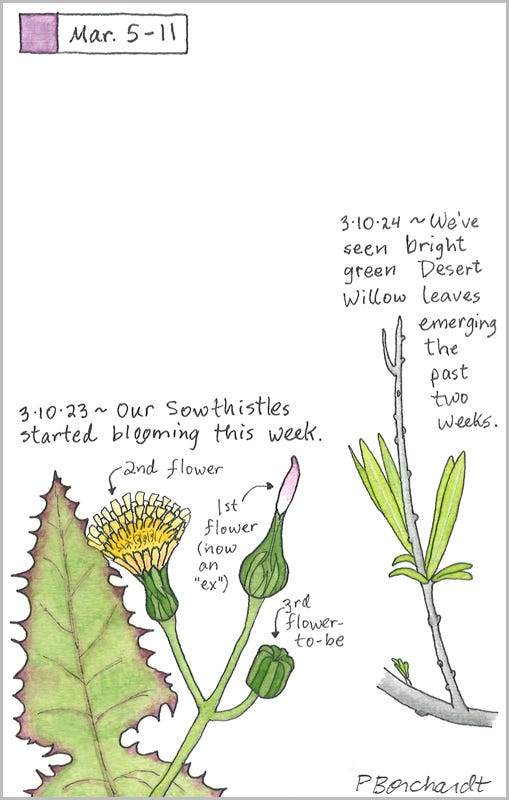 Mar. 5-11
3·10·24 ~ We've
seen bright
green Desert
Willow leaves
emerging
the
past
two
weeks.
3·10·23 ~ Our Sowthistles
started blooming this week.
2nd flower
1st
flower
(now
an
"ex")
3rd
flower-
to-be
PBorchardt